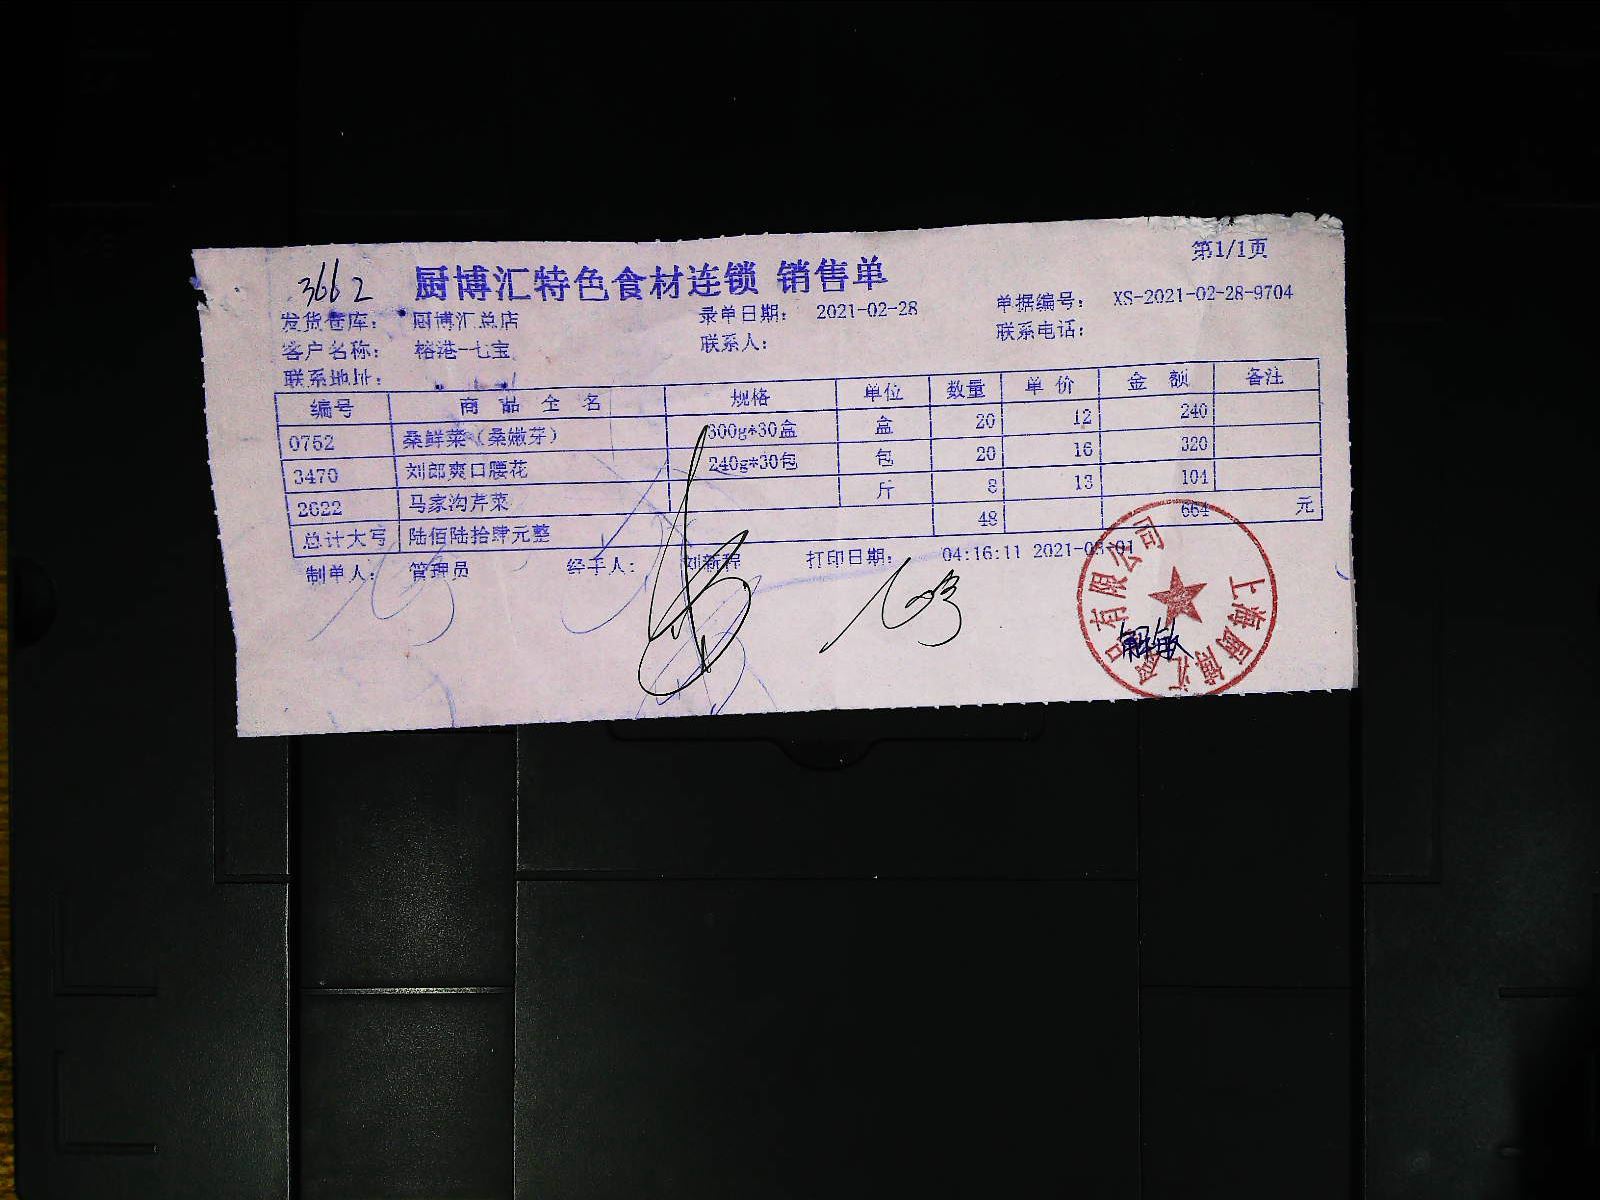 第1/1页
3662
厨博汇特色食材连锁 销售单
发货仓库： 厨博汇总店 录单日期： 2021-02-28 单据编号： XS-2021-02-28-9704
客户名称： 榕港-七宝 联系人： 联系电话：
联系地址：
编号 商品全名 规格 单位 数量 单价 金额 备注
0752 桑鲜菜（桑嫩芽） 300g*30盒 盒 20 12 240
3470 刘郎爽口腰花 240g*30包 包 20 16 320
2622 马家沟芹菜 斤 8 13 104
总计大写 陆佰陆拾肆元整 48 664 元
制单人： 管理员 经手人： 刘新程 打印日期： 04:16:11 2021-03-01
上海厨博汇 品有限公司
解敏